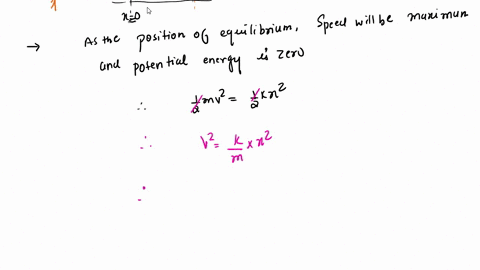 x=0
→ As the position of equilibrium, Speed will be maximum
and potential energy is zero
∴ 1/2 mv² = 1/2 kx²
∴ v² = k/m × x²
∴